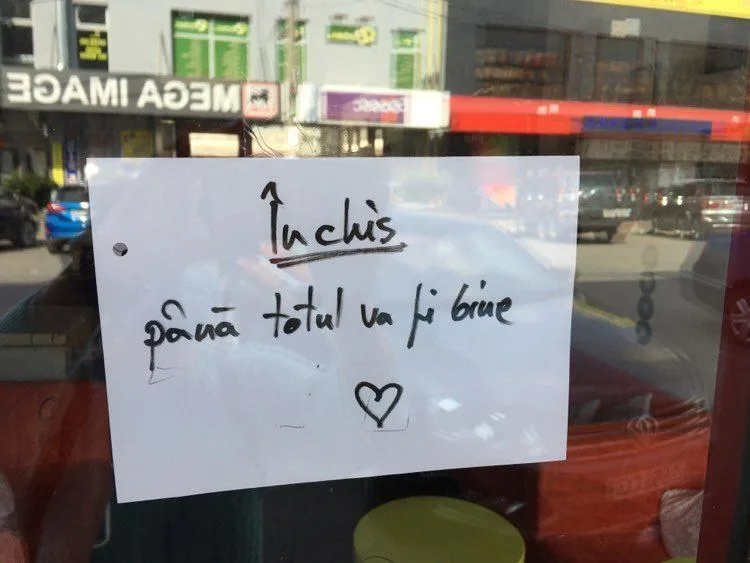 MEGA IMAGE
Închis
până totul va fi bine